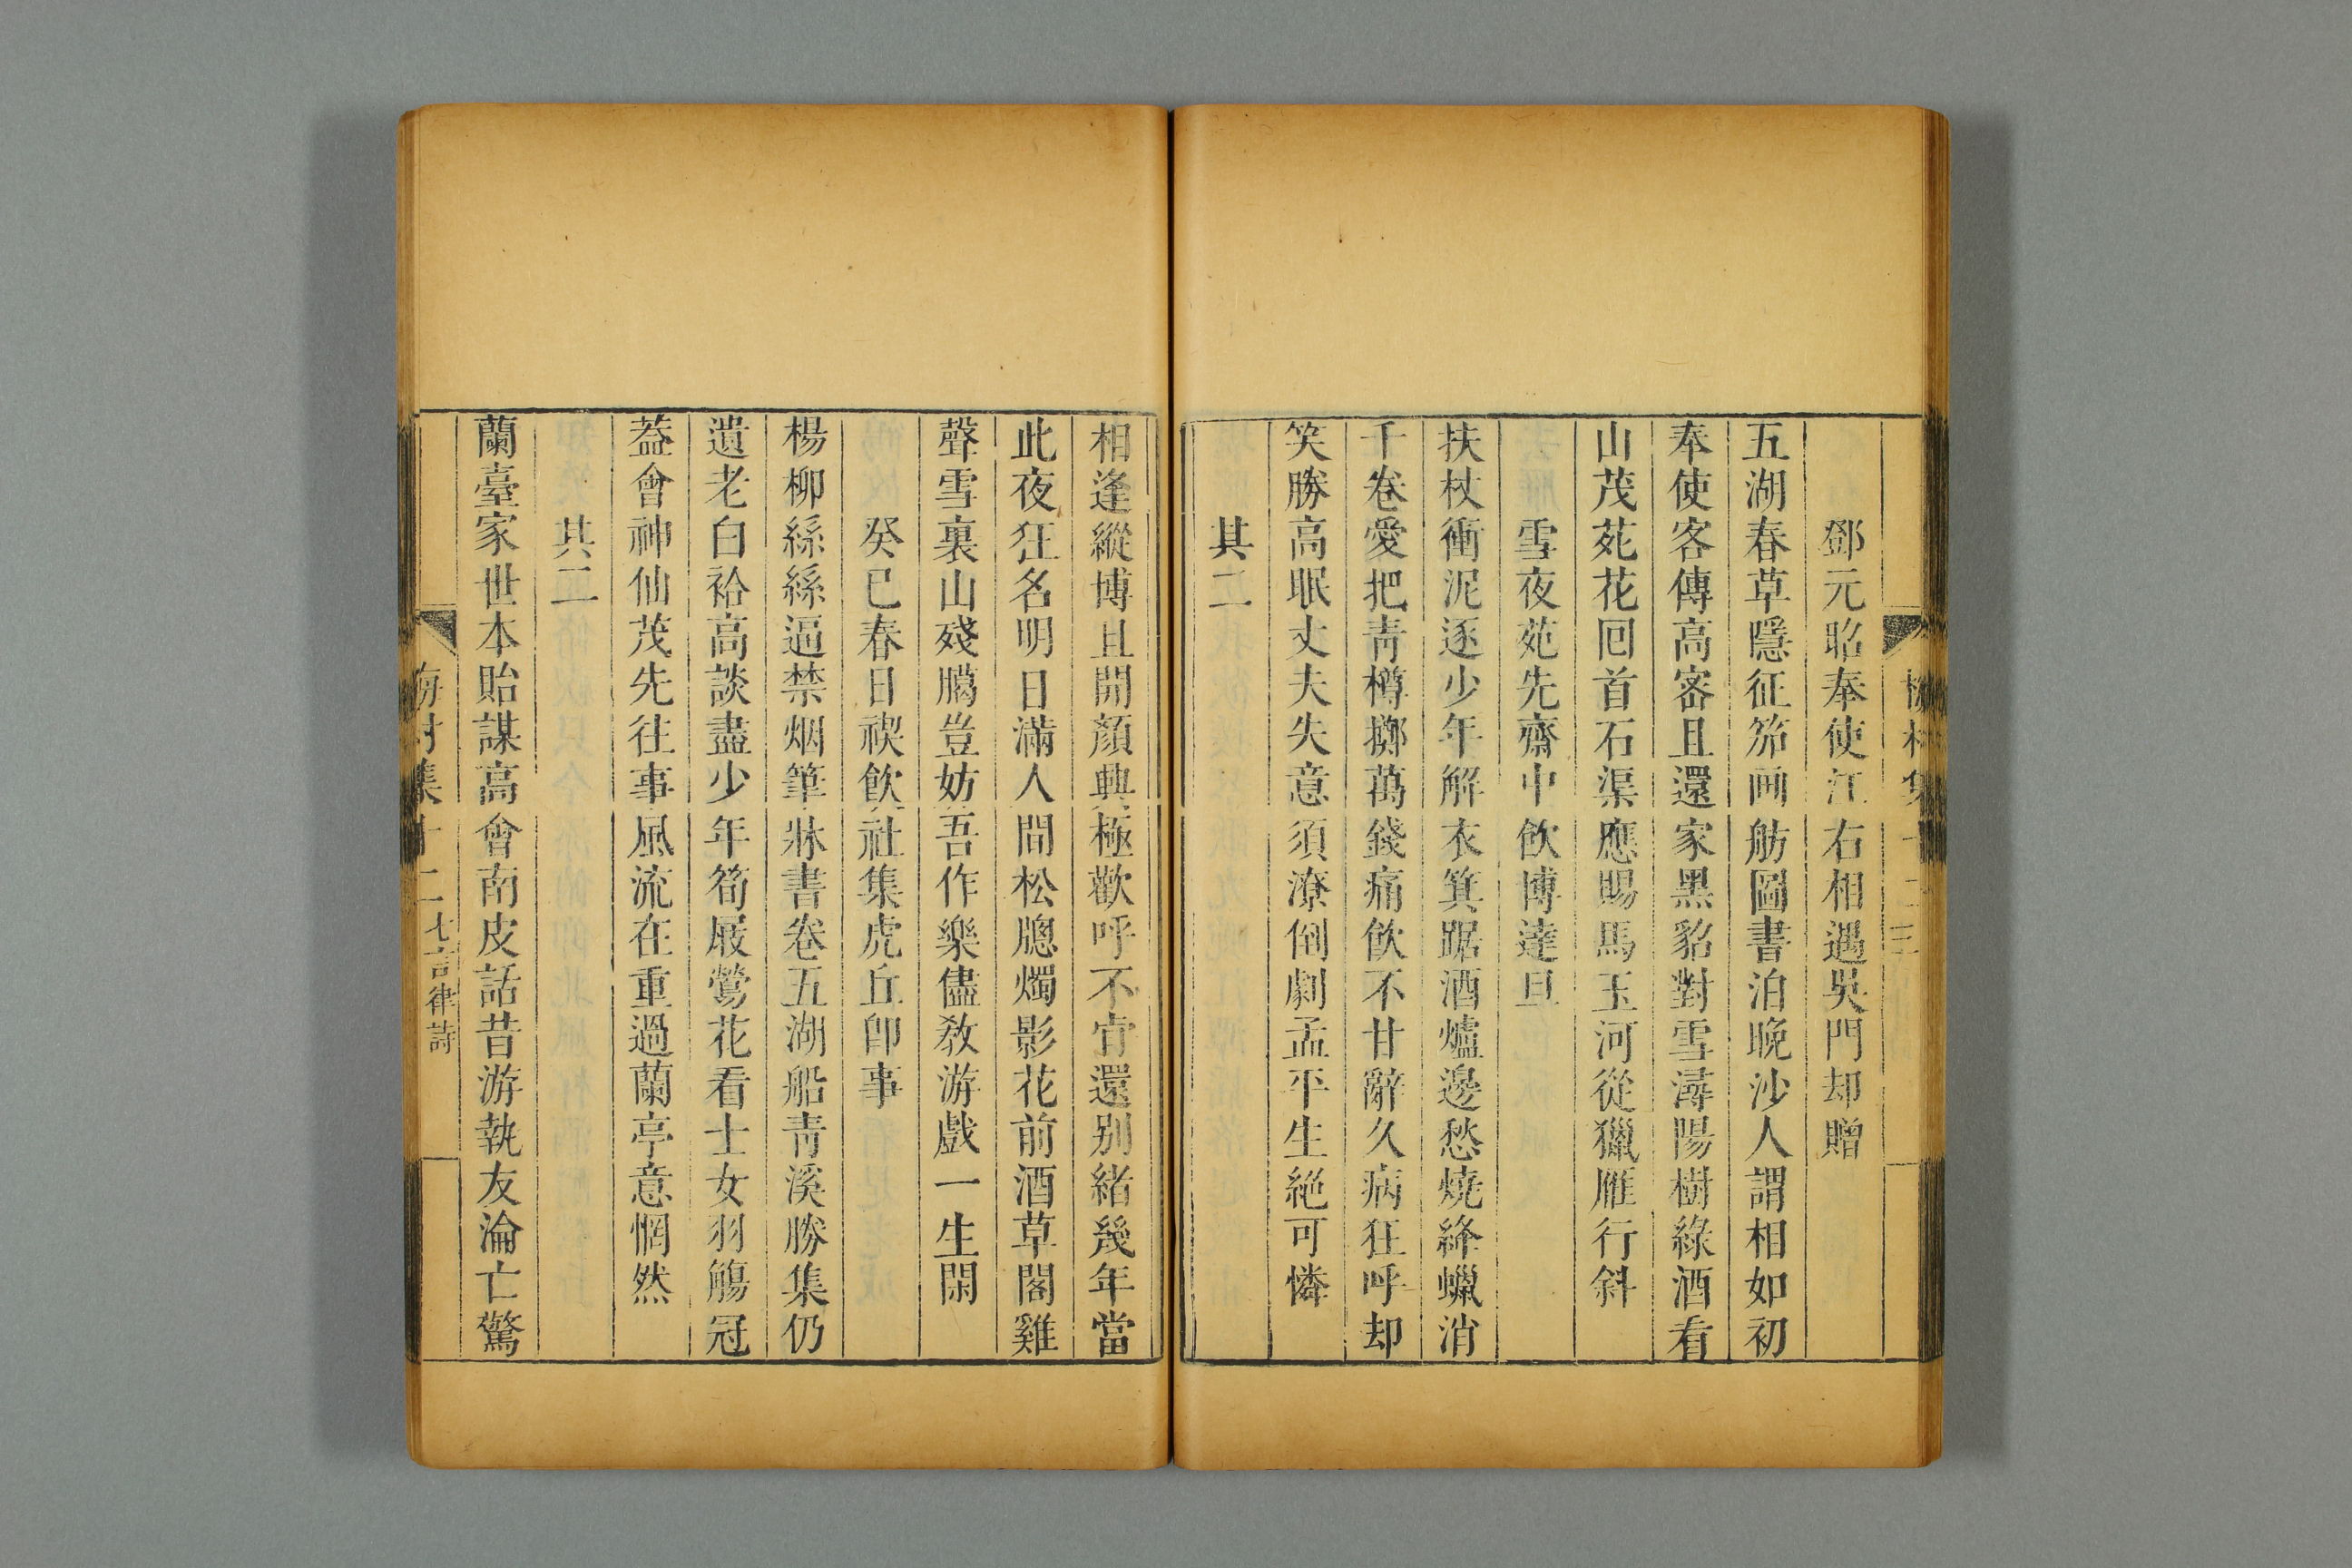 鄧元昭奉使江右相遇吳門却贈
五湖春草隱征笳画舫圖書泊晚沙人謂相如初
奉使客傳高密且還家黑貂對雪潯陽樹綠酒看
山茂苑花囘首石渠應賜馬玉河從獵雁行斜
雪夜苑先齋中飲博達旦
扶杖衝泥逐少年解衣箕踞酒爐邊愁燒絳蠟消
千卷愛把青樽擲萬錢痛飲不甘辭久病狂呼却
笑勝高眠丈夫失意須潦倒劇孟平生絕可憐
其二
相逢縱博且開顏興極歡呼不肯還別緒幾年當
此夜狂名明日滿人間松牕燭影花前酒草閣雞
聲雪裏山殘臈豈妨吾作樂儘教游戲一生閑
癸巳春日禊飲社集虎丘卽事
楊柳絲絲逼禁烟筆牀書卷五湖船青溪勝集仍
遺老白袷高談盡少年筍屐鶯花看士女羽觴冠
葢會神仙茂先往事風流在重過蘭亭意惘然
其二
蘭臺家世本貽謀高會南皮話昔游執友淪亡驚
梅村集十二七言律詩